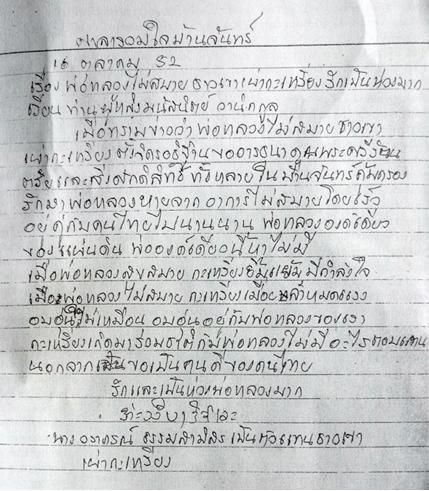 ศาลารวมใจบ้านจันทร์
16 ตุลาคม 52
เรื่อง พ่อหลวงไม่สบาย ชาวเขาเผ่ากะเหรี่ยงรักเป็นห่วงมาก
เรียน ท่านผู้หญิงมนัสนิตย์ วานิกกูล
เมื่อทราบข่าวว่า พ่อหลวงไม่สบาย ชาวเขา
เผ่ากะเหรี่ยง ตั้งจิตอธิฐานขออาราธนา คุณพระศรีรัตน
ตรัยและสิ่งศักดิ์สิทธิ์ทั้งหลายใน บ้านจันทร์คุ้มครอง
รักษา พ่อหลวงหายจาก อาการไม่สบายโดยเร็ว
อยู่คู่กับคนไทยไปนานนาน พ่อหลวงองค์เดียว
ของแผ่นดิน พ่อองค์เดียวนี้หาไม่มี
เมื่อพ่อหลวงสุขสบาย กะเหรี่ยงยิ้มแย้ม มีกำลังใจ
เมื่อพ่อหลวงไม่สบาย กะเหรี่ยงเมื่อยล้าหมดแรง
อบอุ่นใดไม่เหมือน อบอุ่นอยู่กับพ่อหลวงของเรา
กะเหรี่ยงเกิดมาร่วม กับพ่อหลวงไม่มีอะไรตอบแทน
นอกจากขอเป็นคนดีของคนไทย
รักและเป็นห่วงพ่อหลวงมาก
นาง ธรรม เป็นตัวแทนชาวเขา
เผ่ากะเหรี่ยง